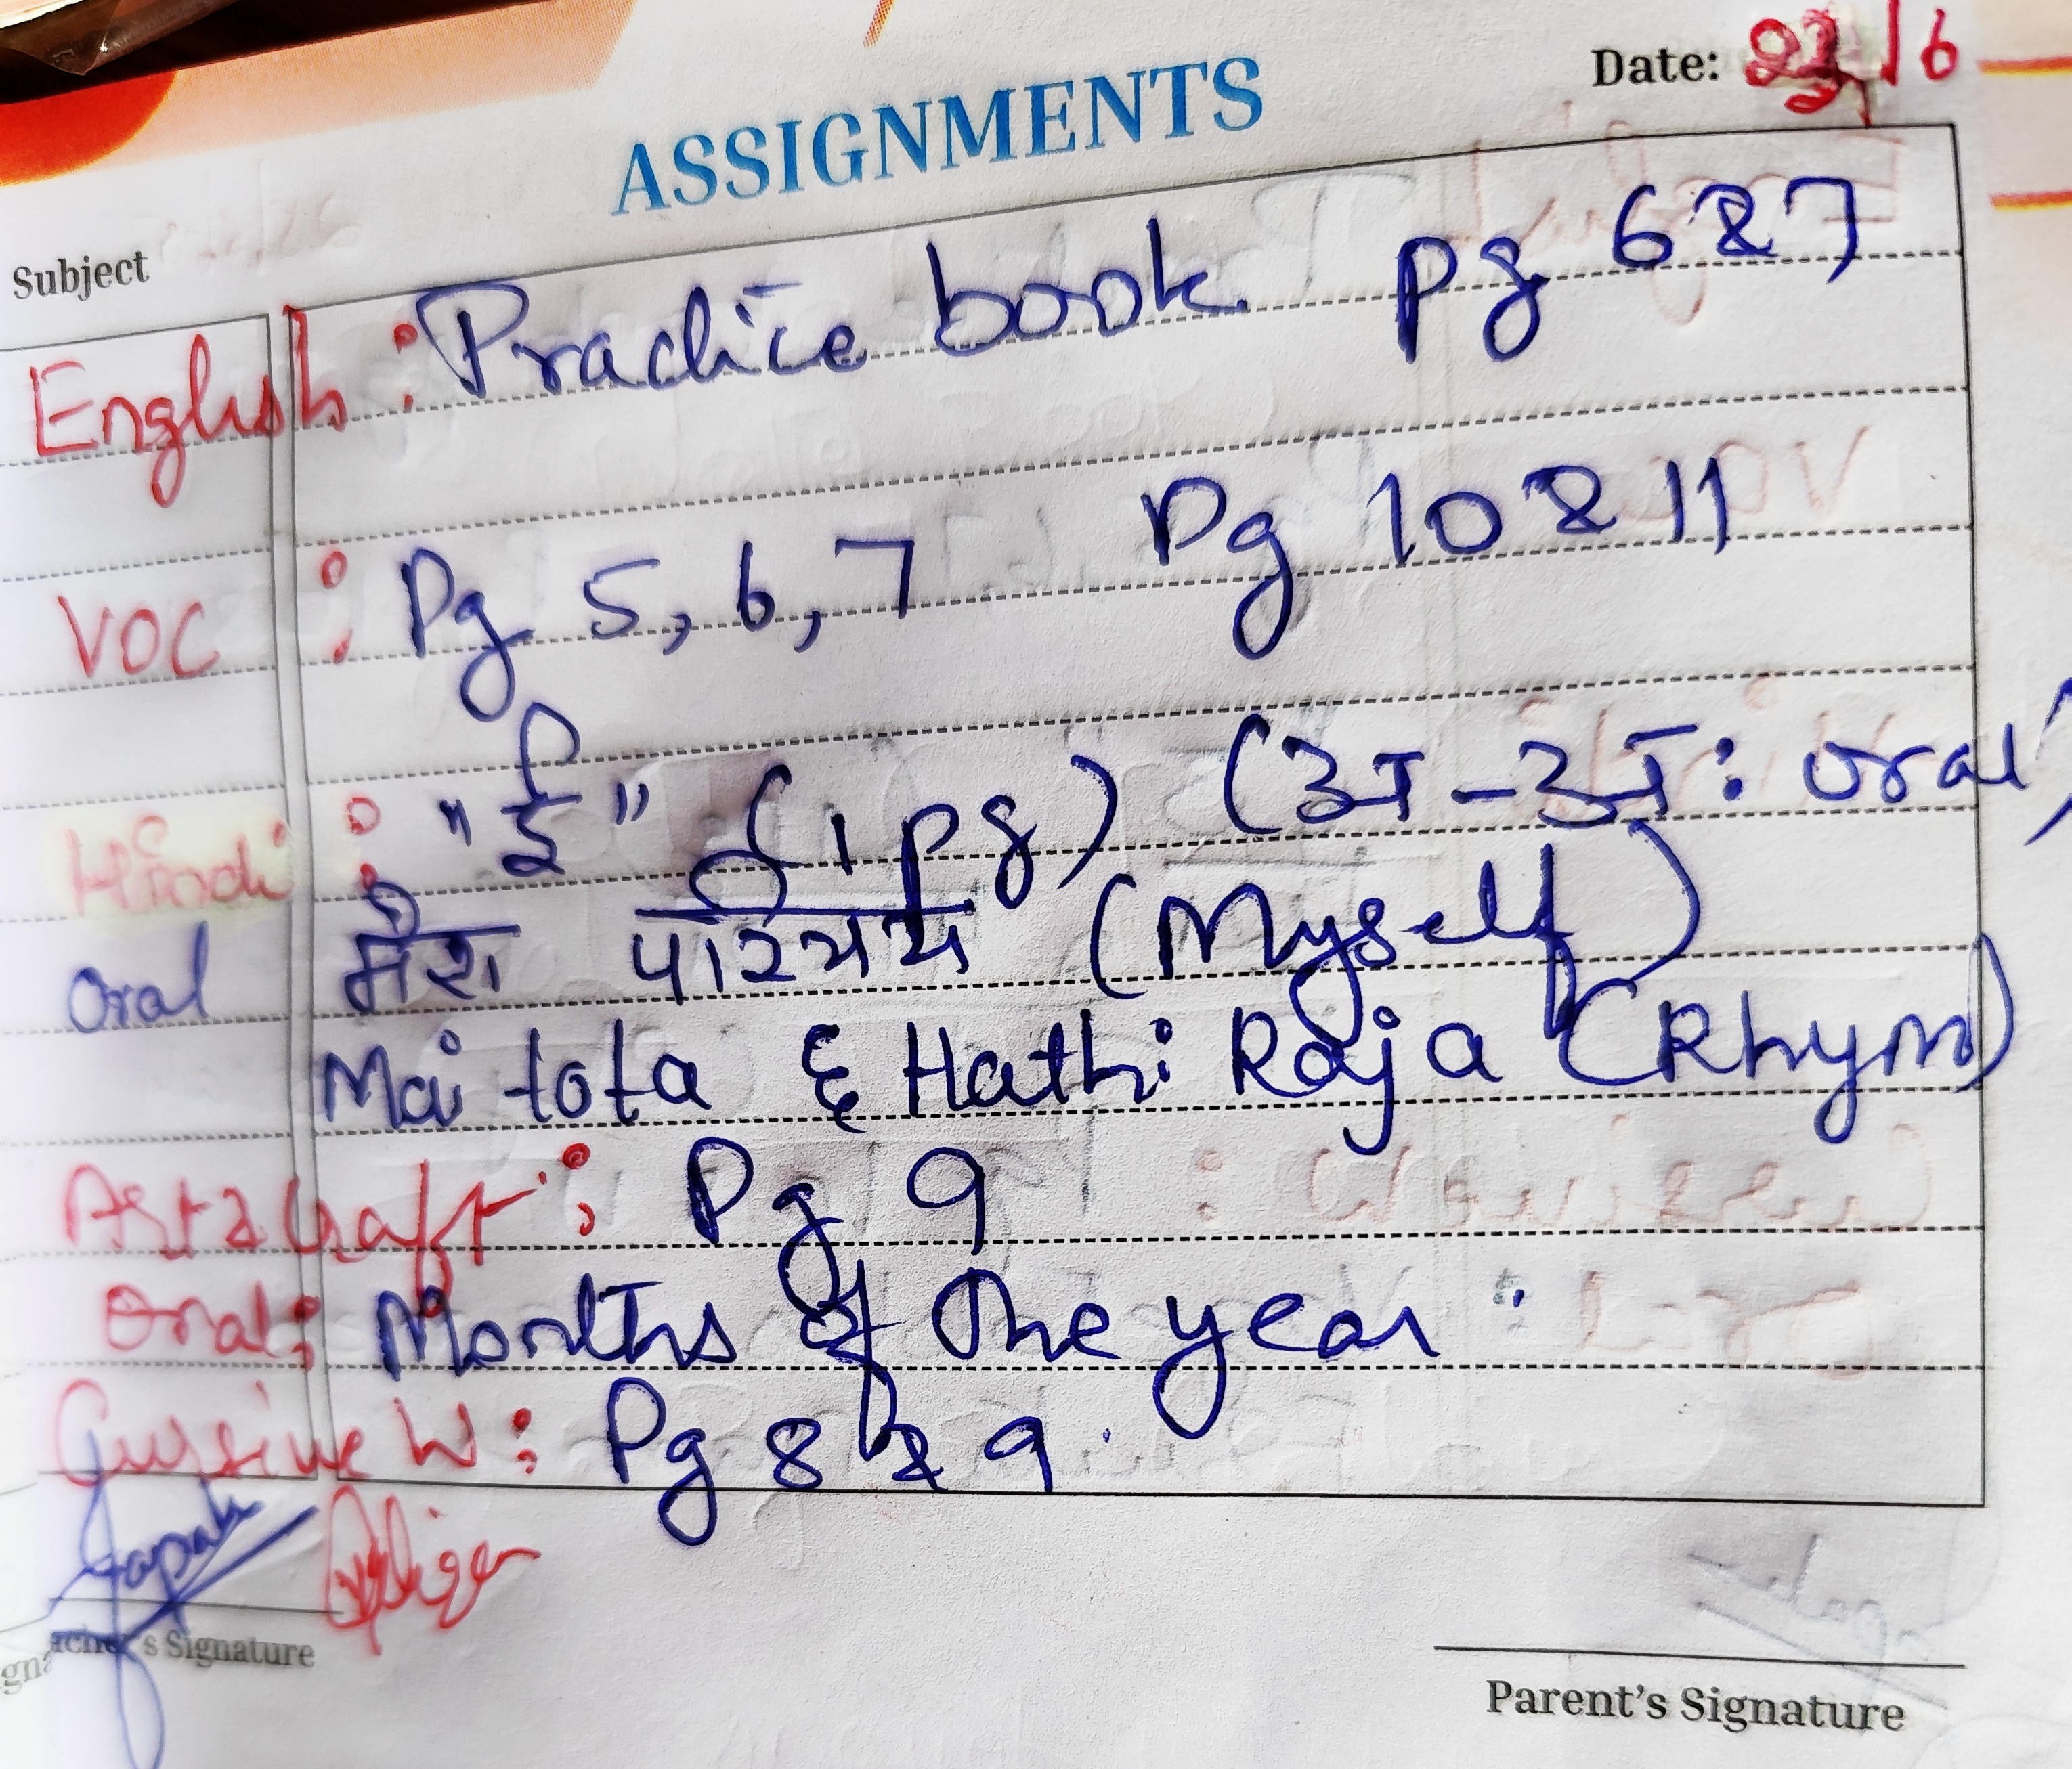 Date: /6
ASSIGNMENTS
Subject
English : Practice book pg 6 & 7
VOC : Pg 5, 6, 7 Pg 10 & 11
Hindi : "ई" (1 pg) (अ-अः oral)
Oral मेरा परिचय (Myself)
Mai tota & Hathi Raja (Rhym)
Art & Craft : Pg 9
Oral : Months of the year
Cursive W : Pg 8 & 9.
Teacher's Signature
Parent's Signature